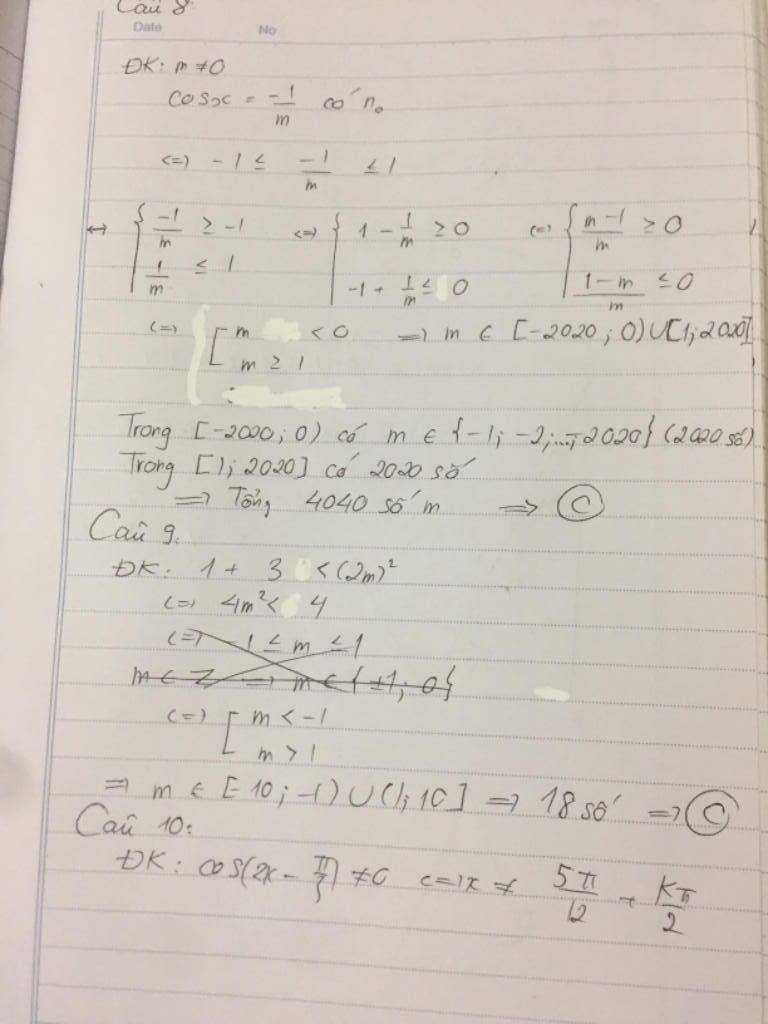 Câu 8
Date No
ĐK: m ≠ 0
cosx = -1/m có n₀
<=> -1 ≤ -1/m ≤ 1
<-> { -1/m ≥ -1 ; 1/m ≤ 1 <=> { 1 - 1/m ≥ 0 ; -1 + 1/m ≤ 0 <=> { m-1/m ≥ 0 ; 1-m/m ≤ 0
<=> [ m < 0 ; m ≥ 1 => m ∈ [-2020; 0) ∪ [1; 2020]
Trong [-2020; 0) có m ∈ {-1; -2;...; -2020} (2020 số)
Trong [1; 2020] có 2020 số
=> Tổng 4040 số m => C
Câu 9:
ĐK: 1 + 3 < (2m)²
<=> 4m² < 4
<=> -1 ≤ m ≤ 1
m ∈ Z => m ∈ {±1; 0}
<=> [ m < -1 ; m > 1
=> m ∈ [-10; -1) ∪ (1; 10] => 18 số => C
Câu 10:
ĐK: cos(2x - π/3) ≠ 0 <=> x ≠ 5π/12 + kπ/2